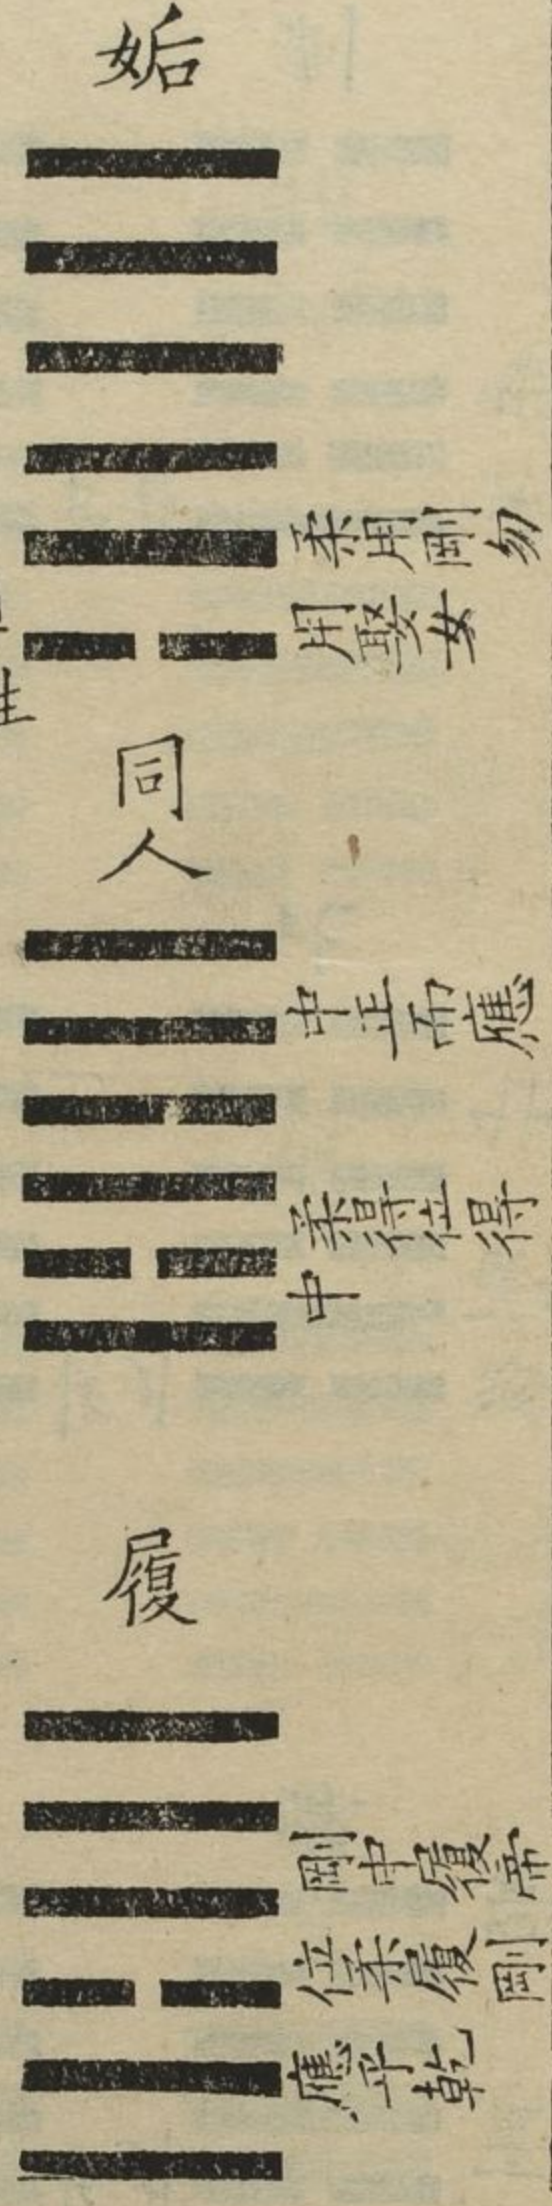 姤
柔用剛勿
用娶女
同人
中正而應
柔得位得
中
履
剛中履帝
位柔履剛
應乎乾